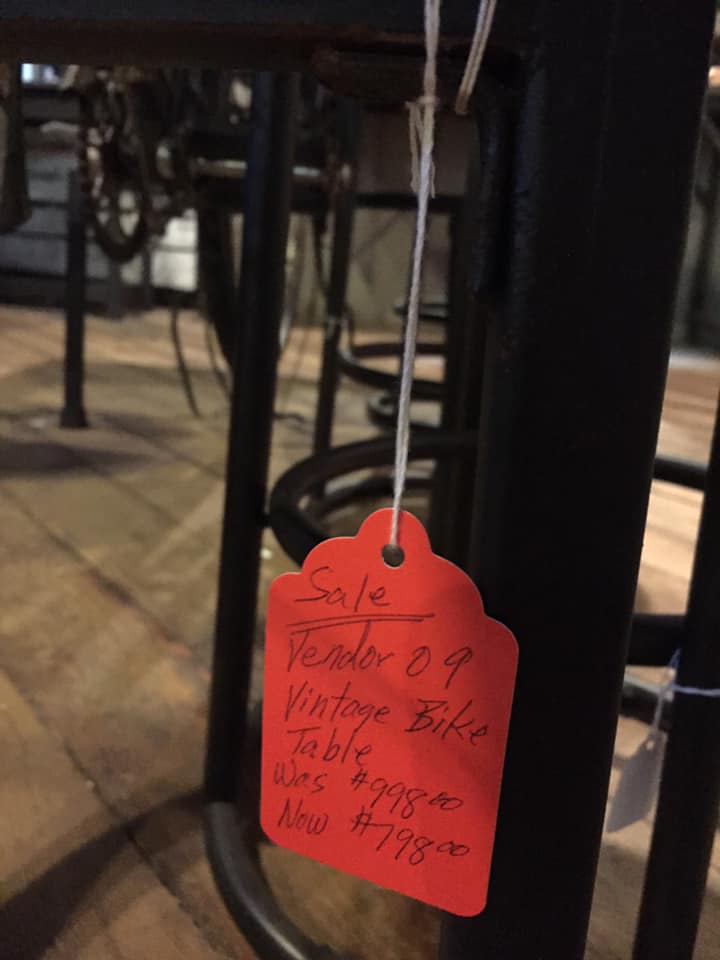 Sale
Vendor 09
Vintage Bike
Table
Was $998.00
Now $798.00